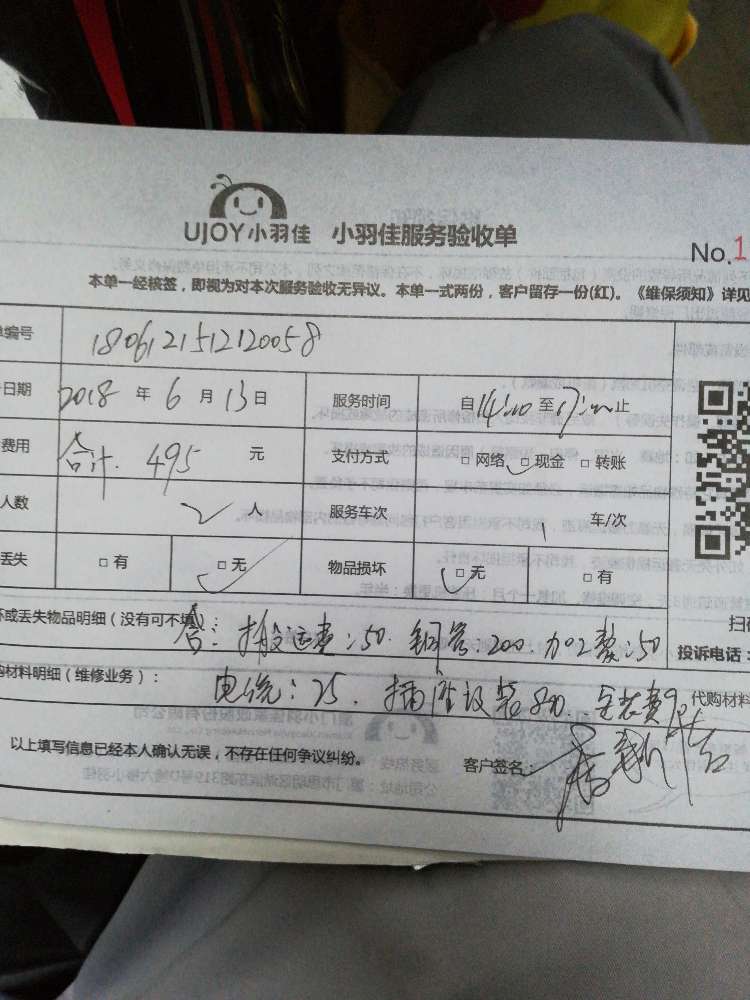 UJOY小羽佳 小羽佳服务验收单
No.1
本单一经核签，即视为对本次服务验收无异议。本单一式两份，客户留存一份(红)。《维保须知》详见
单编号 1806121512120058
日期 2018 年 6 月 13 日 服务时间 自14:00 至17:00止
费用 合计. 495 元 支付方式 □ 网络 □ 现金 □ 转账
人数 2 人 服务车次 1 车/次
丢失 □ 有 □ 无 物品损坏 □ 无 □ 有
坏或丢失物品明细（没有可不填）： 含: 搬运费:50. 钢管:200. 加工费:50
购材料明细（维修业务）： 电线:25. 插座 安装费90 代购材料
扫
投诉电话：
以上填写信息已经本人确认无误，不存在任何争议纠纷。 客户签名：